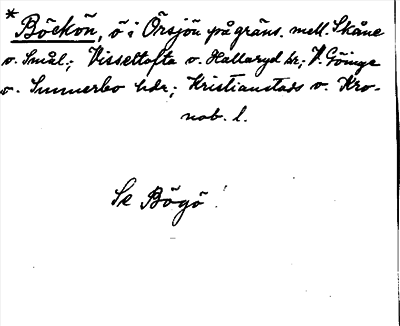 * Böckön, ö i Örsjön på gräns. mell. Skåne
o. Smål.; Visseltofta o. Hallaryd sr; V. Göinge
o. Sunnerbo hdr; Kristianstads o. Kro-
nob. l.
Se Bögö!